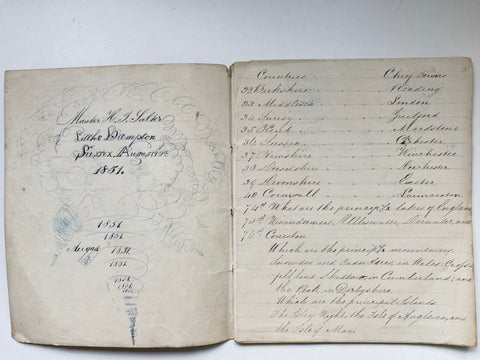 Master H. J. Salter
Little Hampton
Sussex August
1851.
1851
1851
August 1851
1851
1851
1851
Counties Chief Towns
Berkshire Reading
23 Middlesex London
24 Surrey Guilford
25 Kent Maidstone
Sussex Chichester
Winchester
Dorsetshire Dorchester
39 Devonshire Exeter
40 Cornwall Launceston
74th What are the principal lakes of England
75th Winandermere, Ullswater, Derwenter, and
76th Coniston
Which are the principal mountains
Snowdon and Cader Idris, in Wales; Cross
fell, and Skiddaw, in Cumberland; and
the Peak, in Derbyshire
Which are the principal Islands
The Isle of Wight, the Isle of Anglesea, and
the Isle of Man.